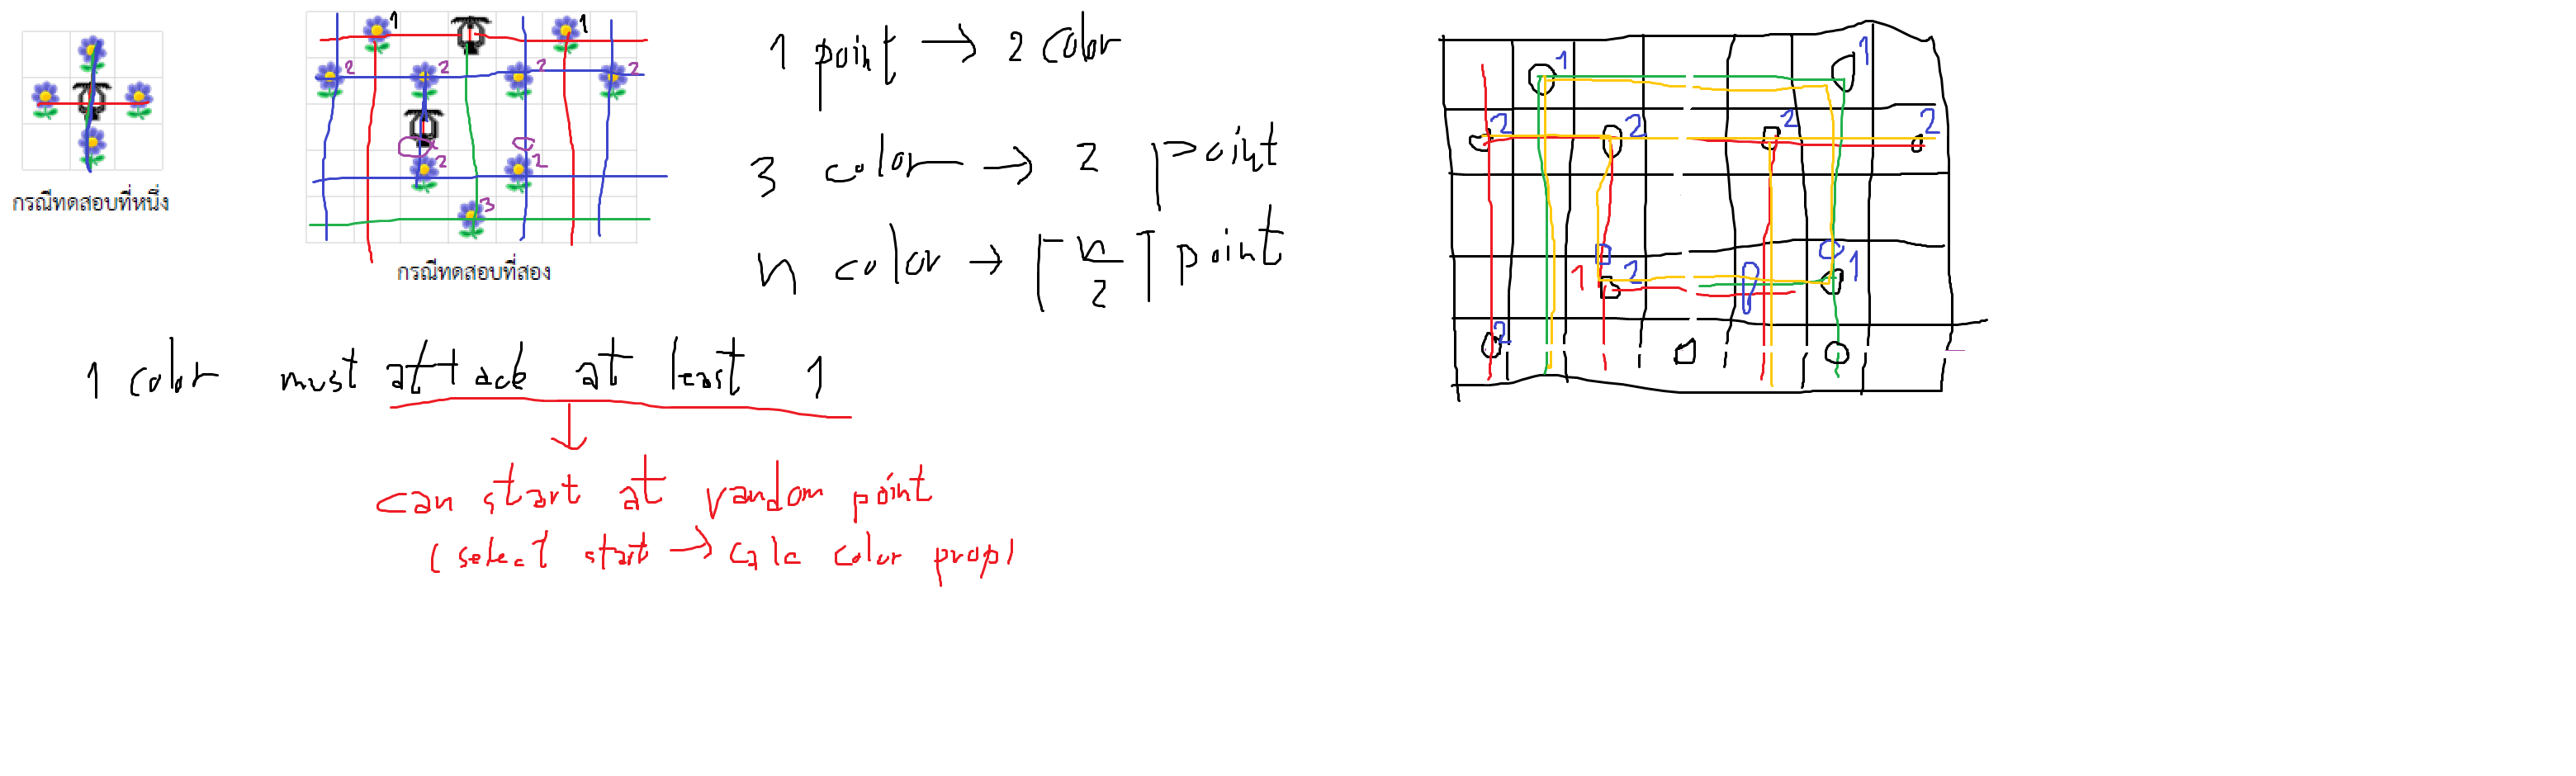 กรณีทดสอบที่หนึ่ง
1 1
2 2 2 2
2 2
3
กรณีทดสอบที่สอง
1 point → 2 color
3 color → 2 point
n color → ⌈n/2⌉ point
1 color must attack at least 1
can start at random point
(select start → calc color prop)
1 1
2 2 2 2
1 2 1
2